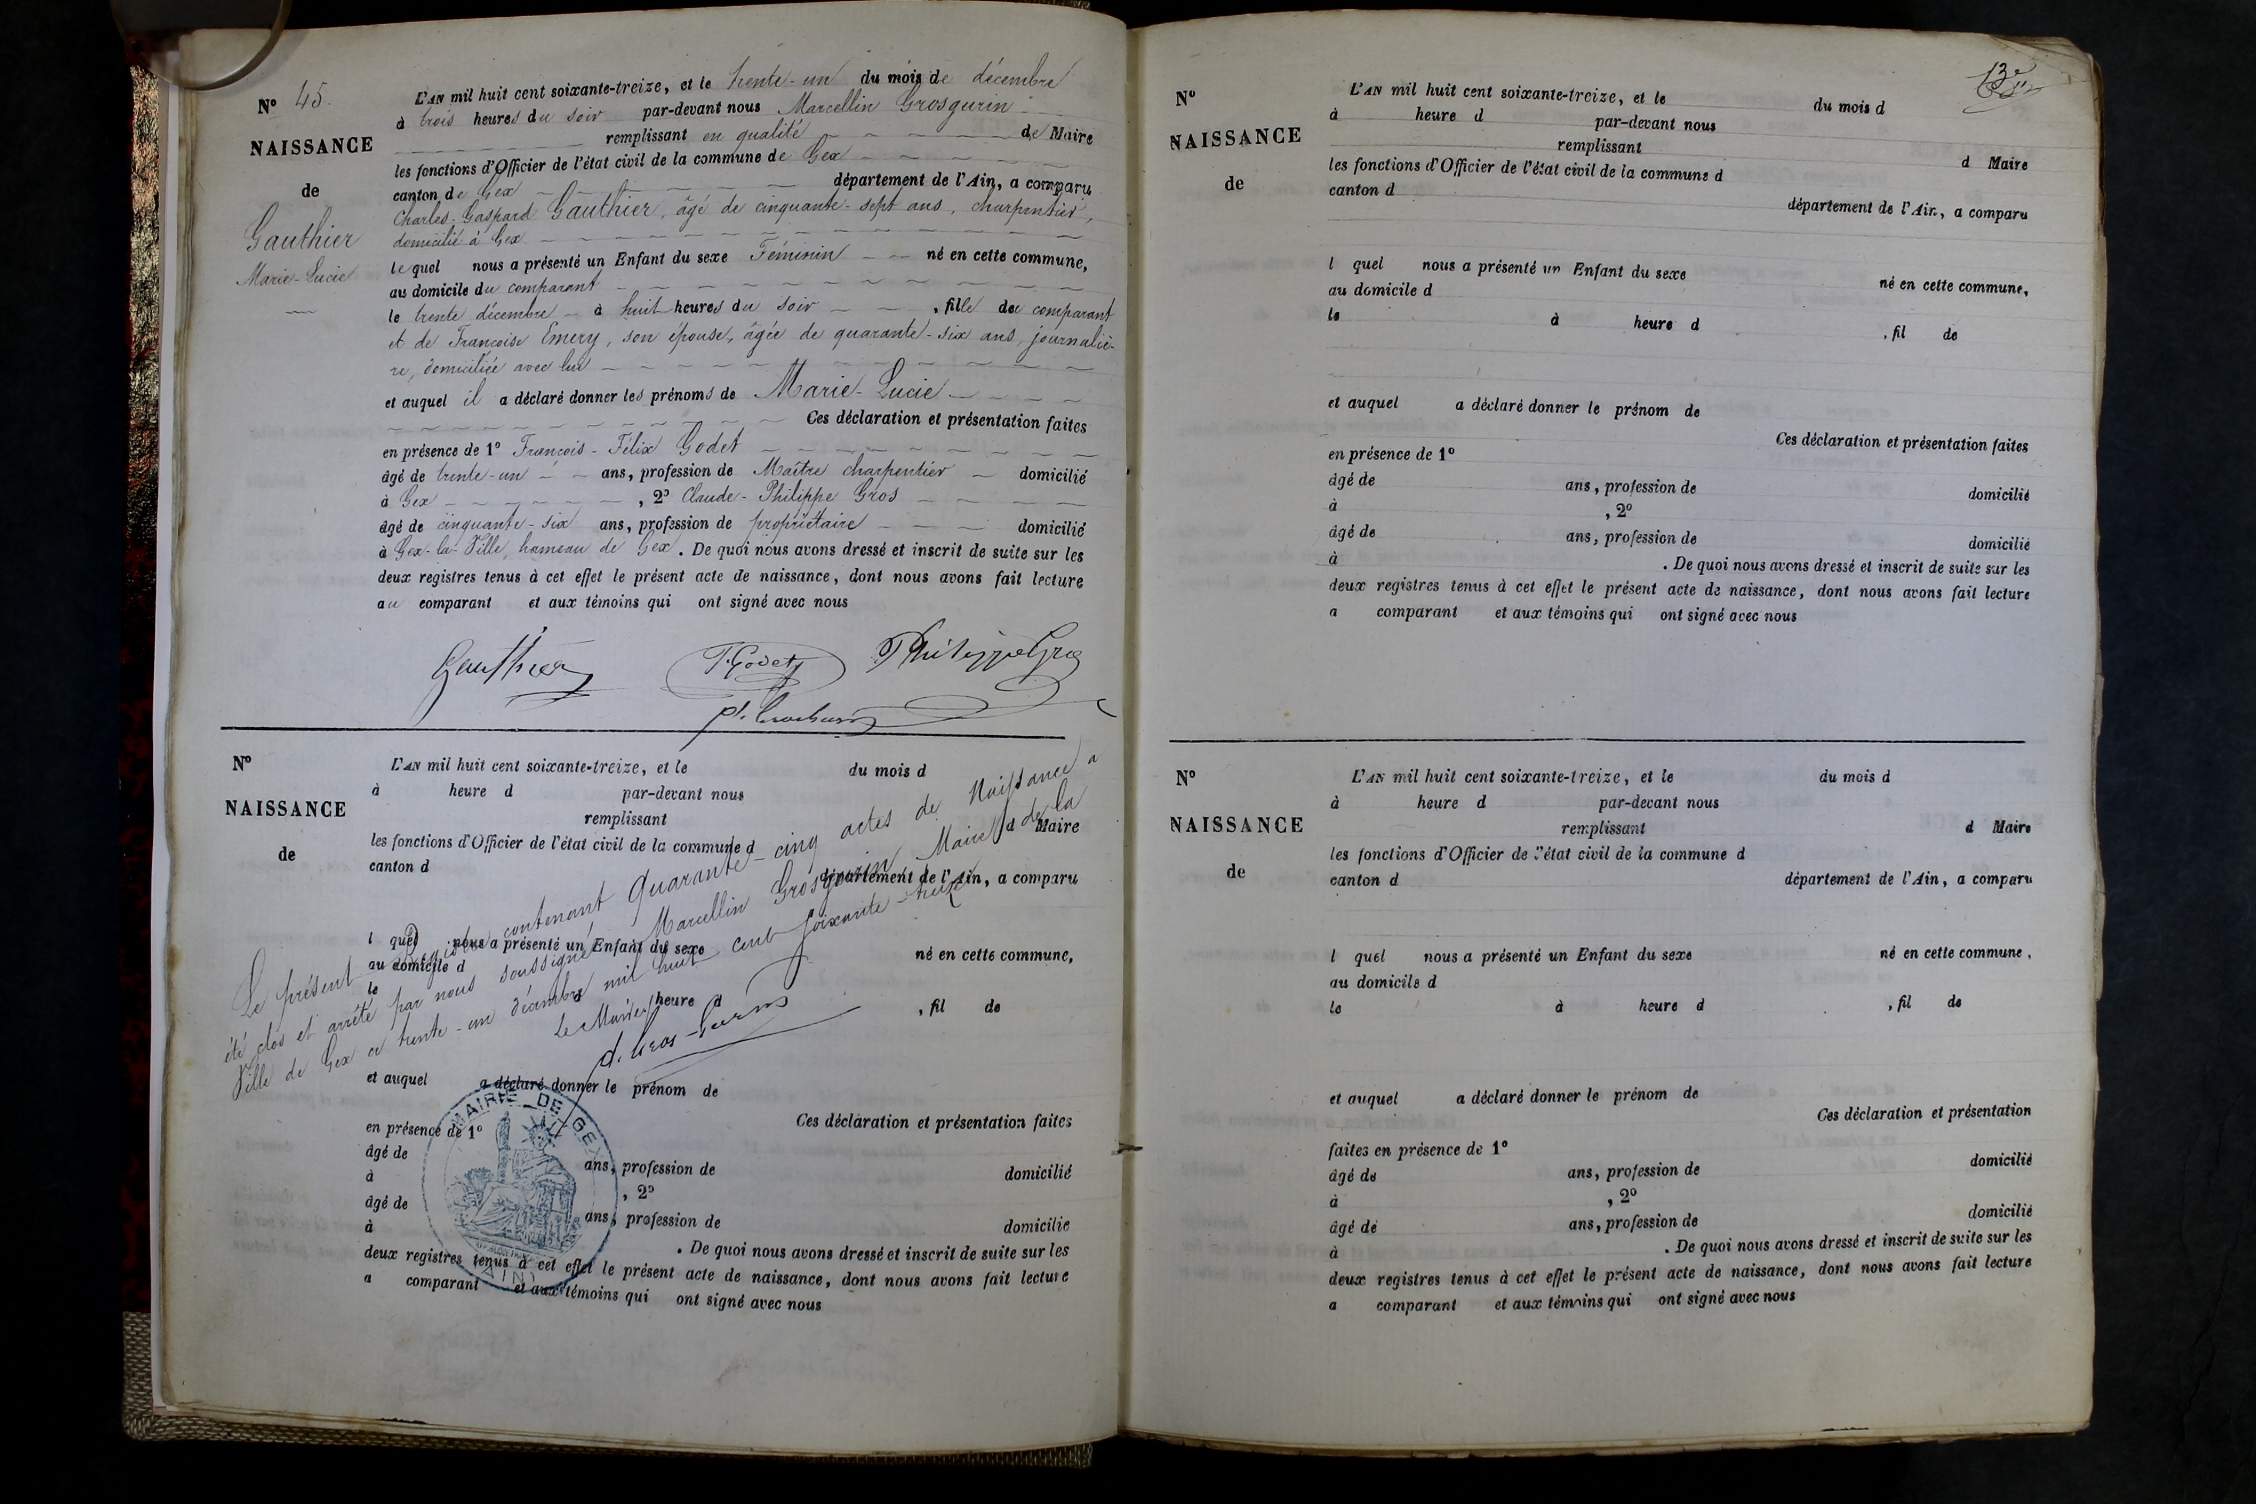 N° 45.
NAISSANCE
de
Gauthier
Marie-Lucie
L'AN mil huit cent soixante-treize, et le trente-un du mois de décembre
à trois heures du soir par-devant nous Marcellin Grosgurin
remplissant en qualité de Maire
les fonctions d'Officier de l'état civil de la commune de Gex
canton de Gex département de l'Ain, a comparu
Charles-Gaspard Gauthier, âgé de cinquante-sept ans, charpentier,
domicilié à Gex
lequel nous a présenté un Enfant du sexe Féminin né en cette commune,
au domicile du comparant
le trente décembre à huit heures du soir, fille du comparant
et de Françoise Emery, son épouse, âgée de quarante-six ans, journaliè-
re, domiciliée avec lui
et auquel il a déclaré donner les prénoms de Marie-Lucie
Ces déclaration et présentation faites
en présence de 1° François-Félix Godet
âgé de trente-un ans, profession de Maître charpentier domicilié
à Gex, 2° Claude-Philippe Gros
âgé de cinquante-six ans, profession de propriétaire domicilié
à Gex-la-Ville, hameau de Gex. De quoi nous avons dressé et inscrit de suite sur les
deux registres tenus à cet effet le présent acte de naissance, dont nous avons fait lecture
au comparant et aux témoins qui ont signé avec nous
Gauthier F. Godet Philippe Gros
N°
NAISSANCE
de
L'AN mil huit cent soixante-treize, et le du mois d
à heure d par-devant nous
remplissant d Maire
les fonctions d'Officier de l'état civil de la commune d
canton d département de l'Ain, a comparu
l quel nous a présenté un Enfant du sexe né en cette commune,
au domicile d
le à heure d , fil de
et auquel a déclaré donner le prénom de
Ces déclaration et présentation faites
en présence de 1°
âgé de ans, profession de domicilié
à , 2°
âgé de ans, profession de domicilié
à . De quoi nous avons dressé et inscrit de suite sur les
deux registres tenus à cet effet le présent acte de naissance, dont nous avons fait lecture
a comparant et aux témoins qui ont signé avec nous
Le présent Registre contenant Quarante-cinq actes de Naissance a
été clos et arrêté par nous soussigné Marcellin Grosgurin Maire de la
Ville de Gex ce trente-un décembre mil huit cent soixante-treize
Le Maire
MAIRIE DE GEX
(AIN)
13e
N°
NAISSANCE
de
L'AN mil huit cent soixante-treize, et le du mois d
à heure d par-devant nous
remplissant d Maire
les fonctions d'Officier de l'état civil de la commune d
canton d département de l'Ain, a comparu
l quel nous a présenté un Enfant du sexe né en cette commune,
au domicile d
le à heure d , fil de
et auquel a déclaré donner le prénom de
Ces déclaration et présentation faites
en présence de 1°
âgé de ans, profession de domicilié
à , 2°
âgé de ans, profession de domicilié
à . De quoi nous avons dressé et inscrit de suite sur les
deux registres tenus à cet effet le présent acte de naissance, dont nous avons fait lecture
a comparant et aux témoins qui ont signé avec nous
N°
NAISSANCE
de
L'AN mil huit cent soixante-treize, et le du mois d
à heure d par-devant nous
remplissant d Maire
les fonctions d'Officier de l'état civil de la commune d
canton d département de l'Ain, a comparu
l quel nous a présenté un Enfant du sexe né en cette commune,
au domicile d
le à heure d , fil de
et auquel a déclaré donner le prénom de
Ces déclaration et présentation
faites en présence de 1°
âgé de ans, profession de domicilié
à , 2°
âgé de ans, profession de domicilié
à . De quoi nous avons dressé et inscrit de suite sur les
deux registres tenus à cet effet le présent acte de naissance, dont nous avons fait lecture
a comparant et aux témoins qui ont signé avec nous